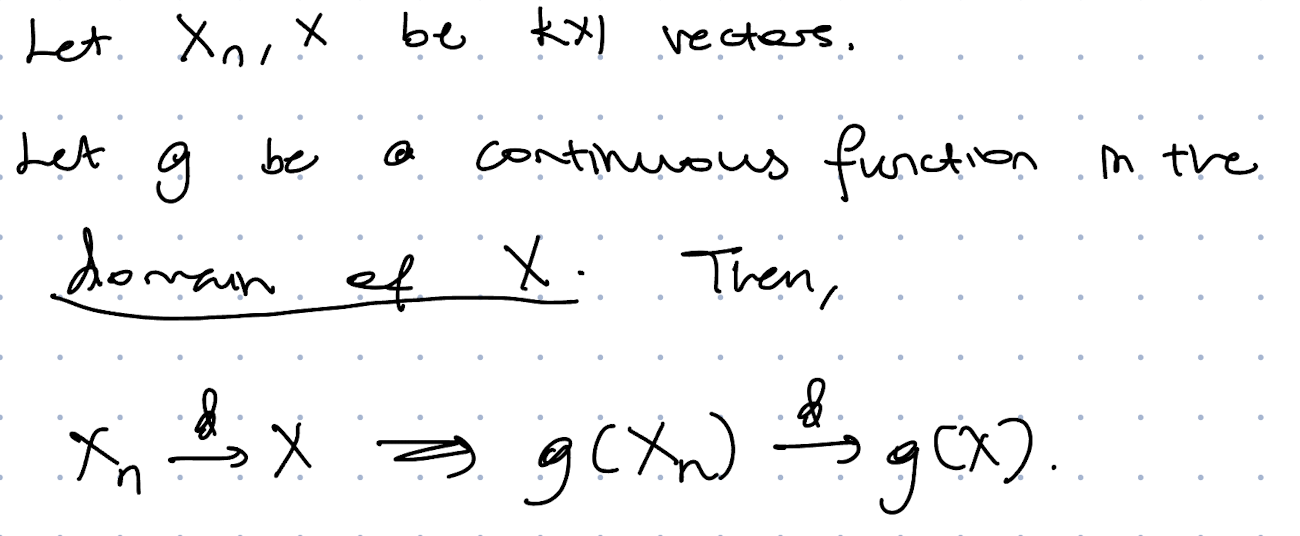 Let Xn, X be k×1 vectors.
Let g be a continuous function in the
domain of X. Then,
Xn →d X ⇒ g(Xn) →d g(X).